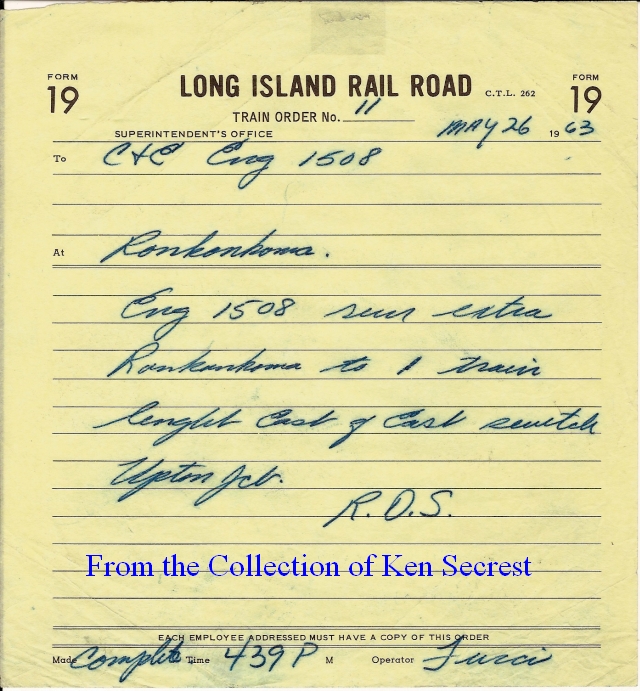 FORM
19
LONG ISLAND RAIL ROAD
C. T. L. 262
FORM
19
TRAIN ORDER No. 11
SUPERINTENDENT'S OFFICE
MAY 26 1963
To C+E Eng 1508
At Ronkonkoma.
Eng 1508 run extra
Ronkonkoma to 1 train
lenght East of East switch
Upton Jct.
R.D.S.
From the Collection of Ken Secrest
EACH EMPLOYEE ADDRESSED MUST HAVE A COPY OF THIS ORDER
Made Complete Time 439 P M Operator